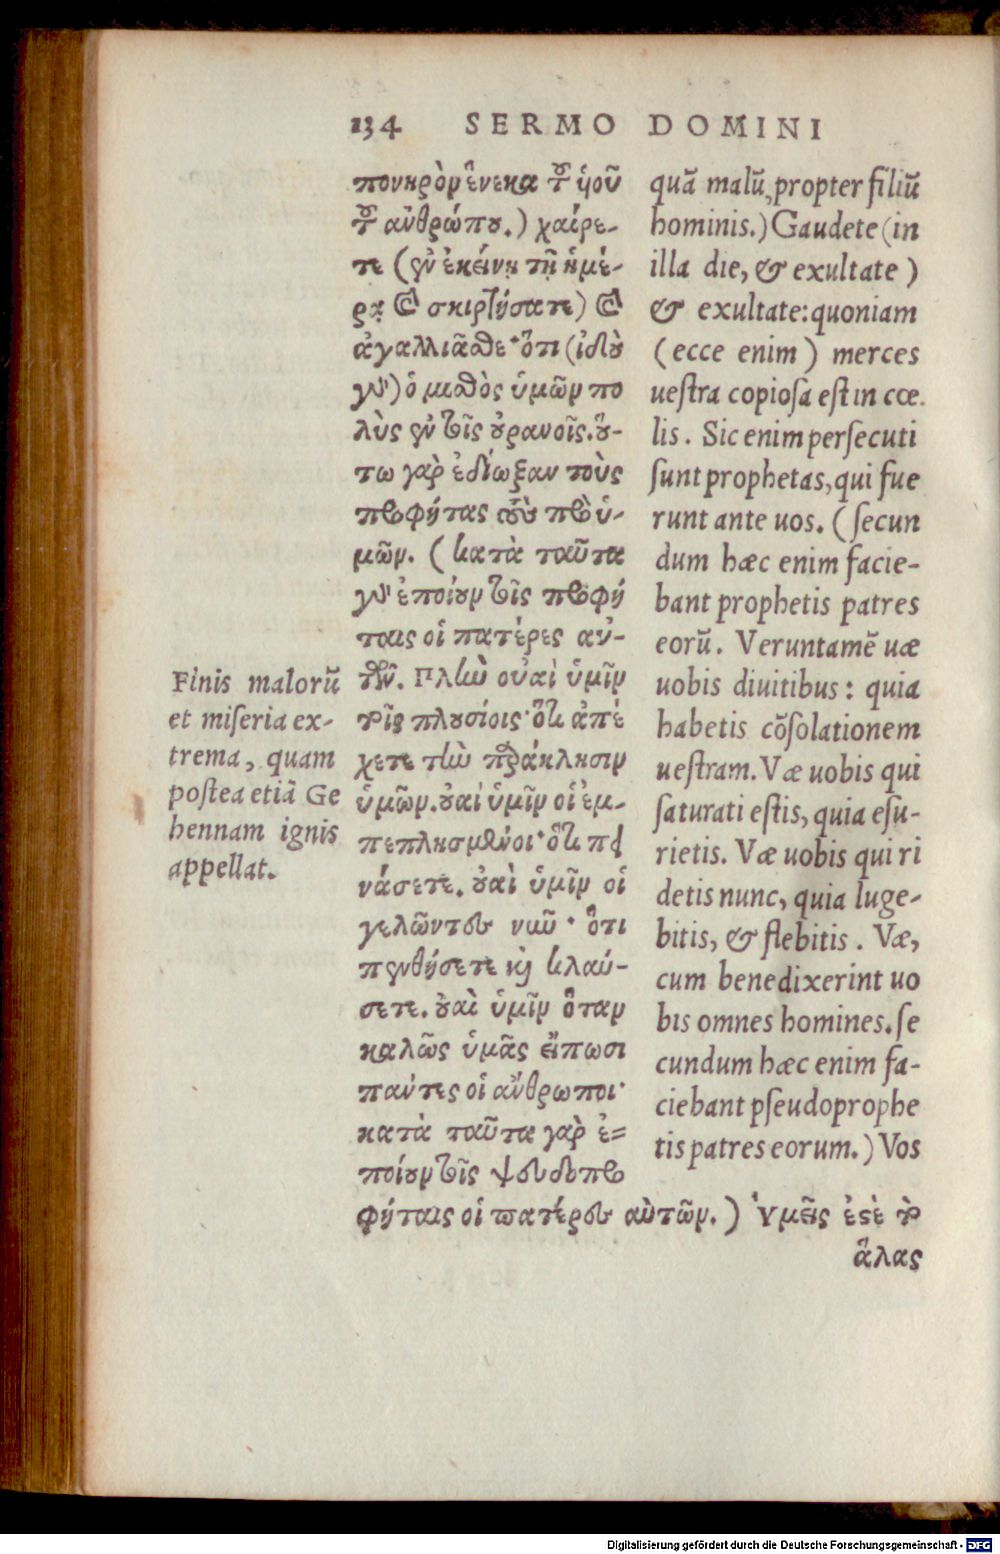 134 SERMO DOMINI
πονηρὸν ἕνεκα τοῦ ὑιοῦ
τοῦ ἀνθρώπου.) χαίρε-
τε (ἐν ἐκείνῃ τῇ ἡμέ-
ρᾳ καὶ σκιρτήσατε) καὶ
ἀγαλλιᾶσθε· ὅτι (ἰδοὺ
γὰρ) ὁ μισθὸς ὑμῶν πο
λὺς ἐν τοῖς οὐρανοῖς. οὕ-
τω γὰρ ἐδίωξαν τοὺς
προφήτας τοὺς πρὸ ὑ-
μῶν. (κατὰ ταῦτα
γὰρ ἐποίουν τοῖς προφή
ταις οἱ πατέρες αὐ-
τῶν. Πλὴν οὐαὶ ὑμῖν
τοῖς πλουσίοις· ὅτι ἀπέ
χετε τὴν παράκλησιν
ὑμῶν. οὐαὶ ὑμῖν οἱ ἐμ-
πεπλησμένοι· ὅτι πει
νάσετε. οὐαὶ ὑμῖν οἱ
γελῶντες νῦν· ὅτι
πενθήσετε καὶ κλαύ-
σετε. οὐαὶ ὑμῖν ὅταν
καλῶς ὑμᾶς εἴπωσι
πάντες οἱ ἄνθρωποι·
κατὰ ταῦτα γὰρ ἐ=
ποίουν τοῖς ψευδοπρο
φήταις οἱ πατέρες αὐτῶν.) Ὑμεῖς ἐστὲ τὸ
ἅλας
quã malũ, propter filiũ
hominis.) Gaudete (in
illa die, & exultate)
& exultate: quoniam
(ecce enim) merces
uestra copiosa est in cœ.
lis. Sic enim persecuti
sunt prophetas, qui fue
runt ante uos. (secun
dum hæc enim facie-
bant prophetis patres
eorũ. Veruntamẽ uæ
uobis diuitibus: quia
habetis cõsolationem
uestram. Væ uobis qui
saturati estis, quia esu-
rietis. Væ uobis qui ri
detis nunc, quia luge-
bitis, & flebitis. Væ,
cum benedixerint uo
bis omnes homines. se
cundum hæc enim fa-
ciebant pseudoprophe
tis patres eorum.) Vos
Finis malorũ
et miseria ex-
trema, quam
postea etiã Ge
hennam ignis
appellat.
Digitalisierung gefördert durch die Deutsche Forschungsgemeinschaft - DFG